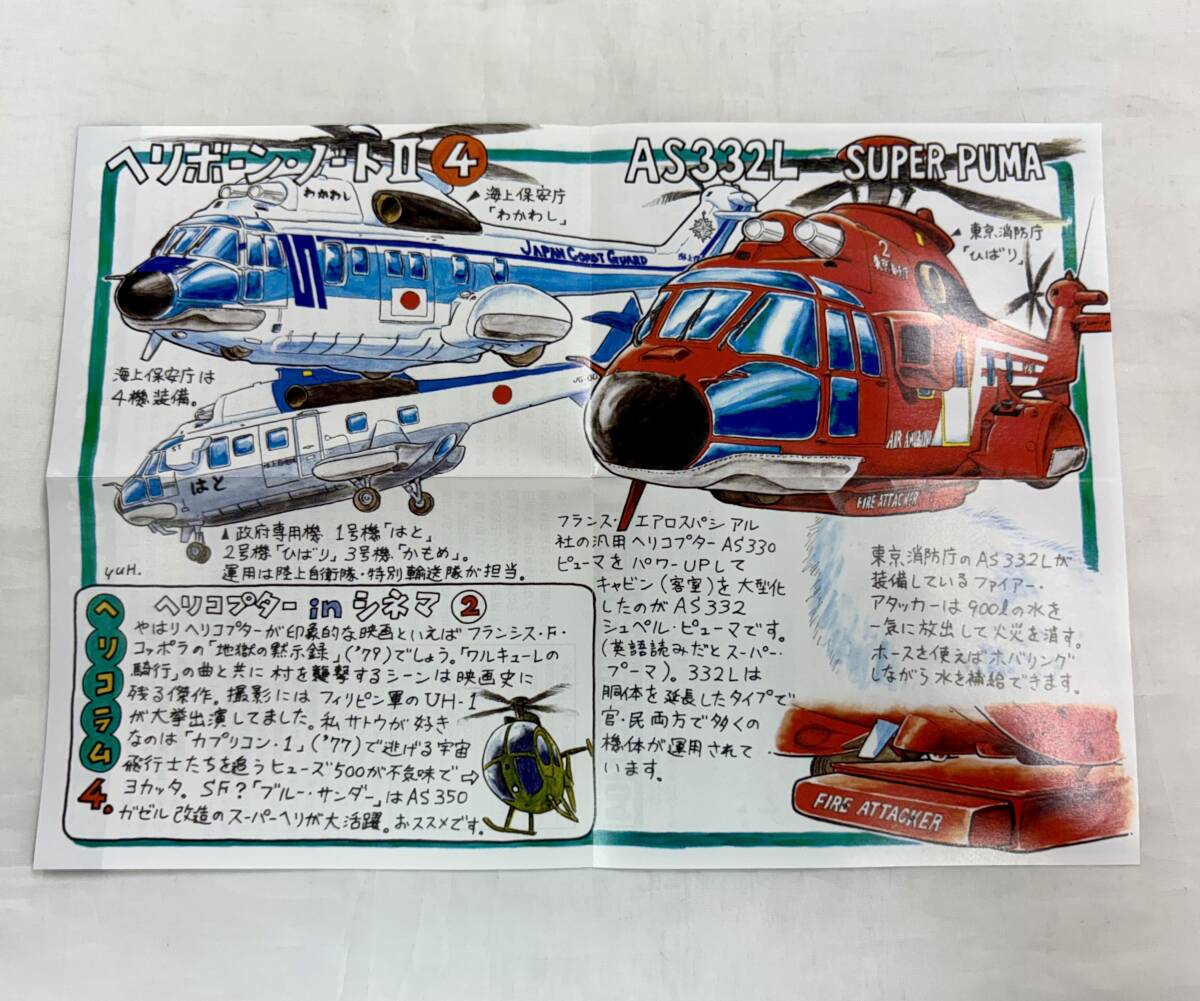 ヘリボーン・ノートⅡ ④
AS332L SUPER PUMA
わかわし
▲海上保安庁
「わかわし」
JAPAN COAST GUARD
海上保安庁は
4機装備。
はと
▲政府専用機 1号機「はと」
2号機「ひばり」、3号機「かもめ」。
運用は陸上自衛隊・特別輸送隊が担当。
yuH.
2
▲東京消防庁
「ひばり」
FIRE ATTACKER
フランス・エアロスパシアル
社の汎用ヘリコプターAS330
ピューマをパワーUPして
キャビン(客室)を大型化
したのがAS332
シュペル・ピューマです。
(英語読みだとスーパー・
プーマ)。332Lは
胴体を延長したタイプで
官・民両方で多くの
機体が運用されて
います。
東京消防庁のAS332Lが
装備しているファイアー・
アタッカーは900ℓの水を
一気に放出して火災を消す。
ホースを使えばホバリング
しながら水を補給できます。
FIRE ATTACKER
ヘリコラム
4.
ヘリコプター in シネマ ②
やはりヘリコプターが印象的な映画といえばフランシス・F・
コッポラの「地獄の黙示録」('79)でしょう。「ワルキューレの
騎行」の曲と共に村を襲撃するシーンは映画史に
残る傑作。撮影にはフィリピン軍のUH-1
が大挙出演してました。私サトウが好き
なのは「カプリコン・1」('77)で逃げる宇宙
飛行士たちを追うヒューズ500が不気味で⇨
ヨカッタ。SF?「ブルー・サンダー」はAS350
ガゼル改造のスーパーヘリが大活躍。おススメです。